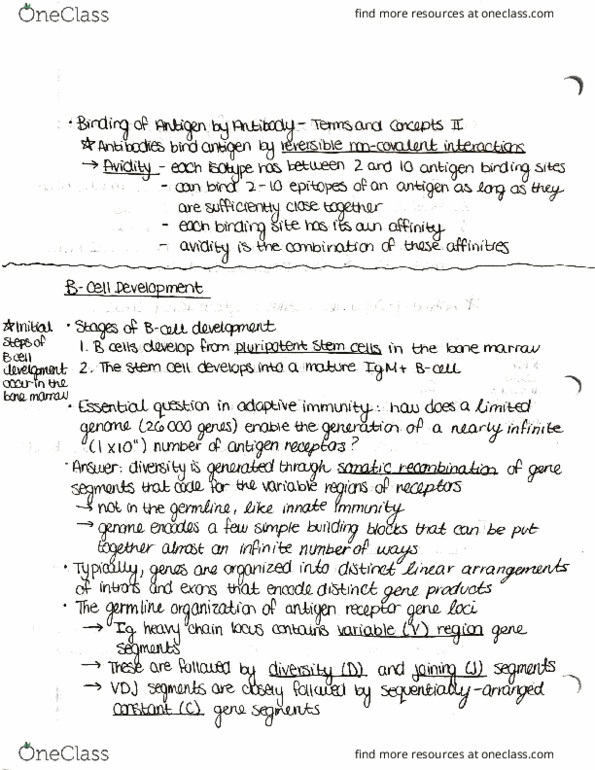 OneClass
find more resources at oneclass.com
• Binding of Antigen by Antibody - Terms and Concepts II
☆ Antibodies bind antigen by reversible non-covalent interactions
→ Avidity - each isotype has between 2 and 10 antigen binding sites
- can bind 2-10 epitopes of an antigen as long as they
are sufficiently close together
- each binding site has its own affinity
- avidity is the combination of these affinities
B-Cell Development
☆Initial
steps of
B cell
development
occur in the
bone marrow
• Stages of B-cell development
1. B cells develop from pluripotent stem cells in the bone marrow
2. The stem cell develops into a mature IgM+ B-cell
• Essential question in adaptive immunity: how does a limited
genome (26 000 genes) enable the generation of a nearly infinite
(1x10¹¹) number of antigen receptors?
• Answer: diversity is generated through somatic recombination of gene
segments that code for the variable regions of receptors
→ not in the germline, like innate immunity
→ genome encodes a few simple building blocks that can be put
together almost an infinite number of ways
• Typically, genes are organized into distinct linear arrangements
of introns and exons that encode distinct gene products
• The germline organization of antigen receptor gene loci
→ Ig heavy chain locus contains variable (V) region gene
segments
→ These are followed by diversity (D) and joining (J) segments
→ VDJ segments are closely followed by sequentially-arranged
constant (C) gene segments
OneClass
find more resources at oneclass.com